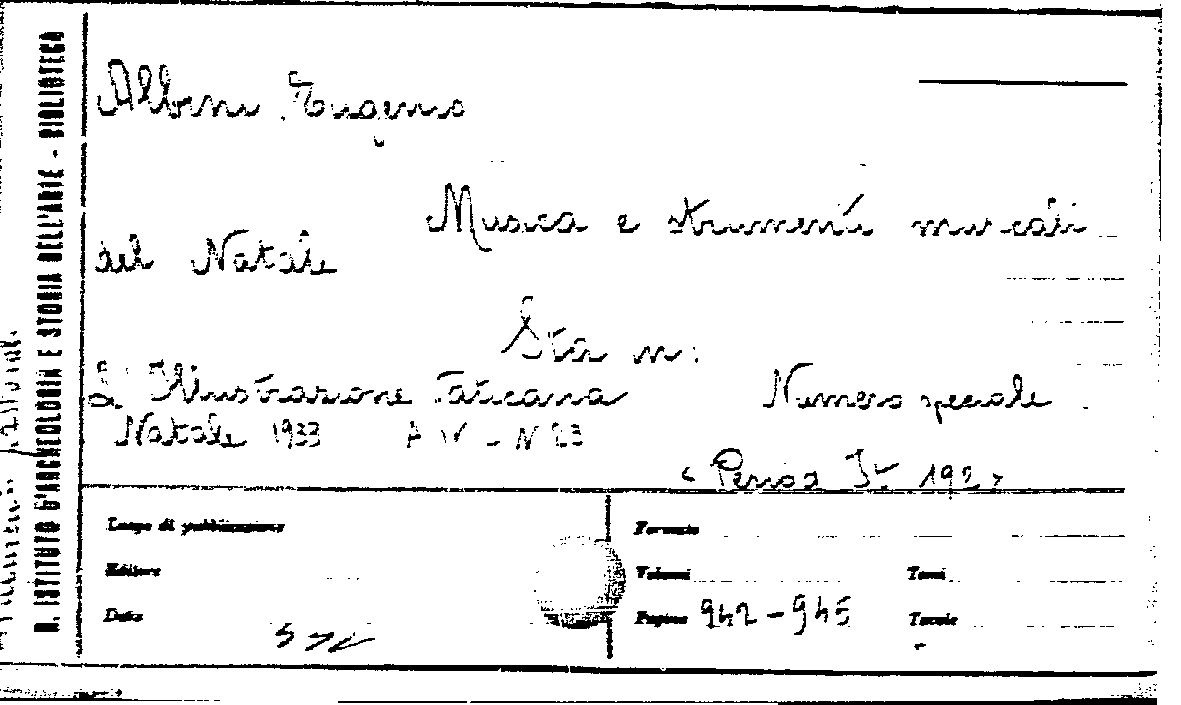 R. ISTITUTO D'ARCHEOLOGIA E STORIA DELL'ARTE - BIBLIOTECA
Albini Eugenio
Musica e strumenti musicali
del Natale
Sta in:
L'Illustrazione Vaticana Numero speciale
Natale 1933 A IV - N 23
(Period It 192)
Luogo di pubblicazione
Formato
Editore
Volumi
Tomi
Data
Pagine 942-945
Tavole